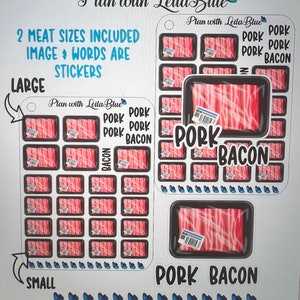 Plan with LeilaBlue
2 MEAT SIZES INCLUDED
IMAGE & WORDS ARE
STICKERS
LARGE
Plan with LeilaBlue
PORK PORK
PORK PORK
BACON
BACON
SMALL
Plan with LeilaBlue
PORK PORK
PORK PORK
BACON
PORK
BACON
PORK BACON